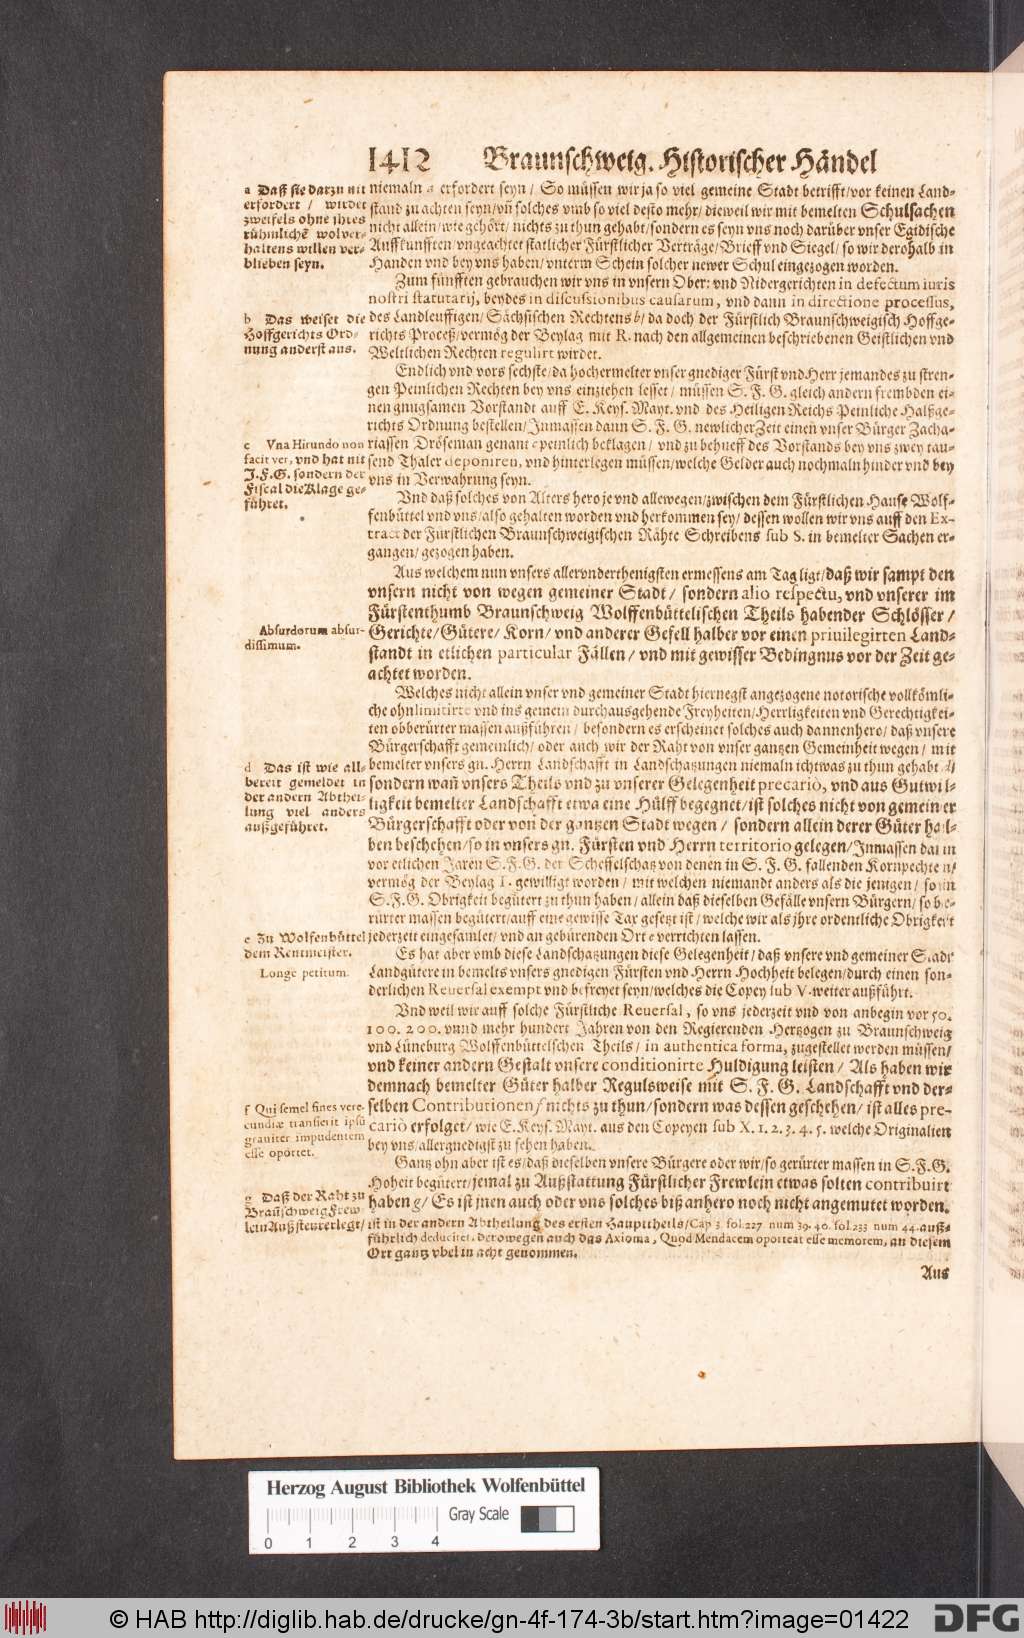 1412 Braunschweig. Historischer Händel
niemaln a erfordert seyn / So müssen wir ja so viel gemeine Stadt betrifft/vor keinen Land-
stand zu achten seyn/vñ solches vmb so viel desto mehr/dieweil wir mit bemelten Schulsachen
nicht allein/wie gehört/nichts zu thun gehabt/sondern es seyn vns noch darüber vnser Egidische
Auffkunfften vngeachtet statlicher Fürstlicher Verträge/Brieff vnd Siegel/so wir derohalb in
Handen vnd bey vns haben/vnterm Schein solcher newer Schul eingezogen worden.
Zum fünfften gebrauchen wir vns in vnsern Ober: vnd Nidergerichten in defectum iuris
nostri statutarij, beydes in discussionibus causarum, vnd dann in directione processus,
des Landleuffigen/Sächsischen Rechtens b/da doch der Fürstlich Braunschweigisch Hoffge-
richts Proceß/vermög der Beylag mit R. nach den allgemeinen beschriebenen Geistlichen vnd
Weltlichen Rechten regulirt wirdet.
Endlich vnd vors sechste/da hochermelter vnser gnediger Fürst vnd Herr jemandes zu stren-
gen Peinlichen Rechten bey vns einziehen lesset / müssen S. F. G. gleich andern frembden ei-
nen gnugsamen Vorstandt auff E. Keys. Mayt. vnd des Heiligen Reichs Peinliche Halßge-
richts Ordnung bestellen/Inmassen dann S. F. G. newlicher Zeit einen vnser Bürger Zacha-
riassen Dröseman genant c peinlich beklagen / vnd zu behueff des Vorstands bey vns zwey tau-
send Thaler deponiren, vnd hinterlegen müssen/welche Gelder auch nochmaln hinder vnd bey
vns in Verwahrung seyn.
Vnd daß solches von Alters hero je vnd allewegen/zwischen dem Fürstlichen Hause Wolf-
fenbüttel vnd vns/also gehalten worden vnd herkommen sey/dessen wollen wir vns auff den Ex-
tract der Fürstlichen Braunschweigischen Rähte Schreibens sub S. in bemelter Sachen er-
gangen/gezogen haben.
Aus welchem nun vnsers allervnderthenigsten ermessens am Tag ligt/daß wir sampt den
vnsern nicht von wegen gemeiner Stadt / sondern alio respectu, vnd vnserer im
Fürstenthumb Braunschweig Wolffenbüttelischen Theils habender Schlösser /
Gerichte/Gütere/Korn/vnd anderer Gefell halber vor einen priuilegirten Land-
standt in etlichen particular Fällen/vnd mit gewisser Bedingnus vor der Zeit ge-
achtet worden.
Welches nicht allein vnser vnd gemeiner Stadt hiernegst angezogene notorische vollkömli-
che ohnlimitirte vnd ins gemein durchausgehende Freyheiten/Herrligkeiten vnd Gerechtigkei-
ten obberürter massen außführen / besondern es erscheinet solches auch dannenhero/daß vnsere
Bürgerschafft gemeinlich/oder auch wir der Raht von vnser gantzen Gemeinheit wegen / mit
bemelter vnsers gn. Herrn Landschafft in Landschatzungen niemaln ichtwas zu thun gehabt d/
sondern wañ vnsers Theils vnd zu vnserer Gelegenheit precariò, vnd aus Gutwil-
ligkeit bemelter Landschafft etwa eine Hülff begegnet/ist solches nicht von gemeiner
Bürgerschafft oder von der gantzen Stadt wegen / sondern allein derer Güter hal-
ben beschehen/so in vnsers gn. Fürsten vnd Herrn territorio gelegen/Inmassen dañ in
vor etlichen Jaren S.F.G. der Scheffelschatz von denen in S. F. G. fallenden Kornpechten/
vermög der Beylag T. gewilligt worden / mit welchen niemandt anders als die jenigen / so in
S.F.G. Obrigkeit begütert zu thun haben/allein daß dieselben Gefälle vnsern Bürgern/so be-
rürter massen begütert/auff eine gewisse Tax gesetzt ist/welche wir als jhre ordentliche Obrigkeit
jederzeit eingesamlet/vnd an gebürenden Ort e verrichten lassen.
Es hat aber vmb diese Landschatzungen diese Gelegenheit/daß vnsere vnd gemeiner Stadt
Landgütere in bemelts vnsers gnedigen Fürsten vnd Herrn Hochheit belegen/durch einen son-
derlichen Reuersal exempt vnd befreyet seyn/welches die Copey sub V. weiter außführt.
Vnd weil wir auff solche Fürstliche Reuersal, so vns jederzeit vnd von anbegin vor 50.
100. 200. vnnd mehr hundert Jahren von den Regierenden Hertzogen zu Braunschweig
vnd Lüneburg Wolffenbüttelschen Theils/ in authentica forma, zugestellet werden müssen/
vnd keiner andern Gestalt vnsere conditionirte Huldigung leisten / Als haben wir
demnach bemelter Güter halber Regulsweise mit S. F. G. Landschafft vnd der-
selben Contributionen f nichts zu thun/sondern was dessen geschehen/ ist alles pre-
cariò erfolget/wie E. Keys. Mayt. aus den Copeyen sub X. 1. 2. 3. 4. 5. welche Originalien
bey vns/allergnedigst zu sehen haben.
Gantz ohn aber ist es/daß dieselben vnsere Bürgere oder wir/so gerürter massen in S.F.G.
Hoheit begütert/jemal zu Außstattung Fürstlicher Frewlein etwas solten contribuirt
haben g/ Es ist jnen auch oder vns solches biß anhero noch nicht angemutet worden.
ist in der andern Abtheilung des ersten Haupttheils/Cap 3. fol. 227 num 39. 40. fol. 233 num 44. auß-
führlich deducitet, derowegen auch das Axioma, Quod Mendacem oporteat esse memorem, an diesem
Ort gantz vbel in acht genommen.
Aus
a Daß sie darzu nit
erfordert / wirdet
zweifels ohne ihres
rühmlichẽ wolver-
haltens willen ver-
blieben seyn.
b Das weiset die
Hoffgerichts Ord-
nung anderst aus.
c Vna Hirundo non
facit ver, vnd hat nit
J.F.G. sondern der
Fiscal die Klage ge-
führet.
Absurdorum absur-
dissimum.
d Das ist wie all-
bereit gemeldet in
der andern Abthei-
lung viel anders
außgeführet.
e Zu Wolfenbüttel
dem Rentmeister.
Longe petitum.
f Qui semel fines vere-
cundiæ transierit ipsũ
grauiter impudentem
esse oportet.
g Daß der Raht zu
Brauñschweig Frew-
lein Außstewrerlegt/
Herzog August Bibliothek Wolfenbüttel
Gray Scale
0 1 2 3 4
© HAB http://diglib.hab.de/drucke/gn-4f-174-3b/start.htm?image=01422
DFG